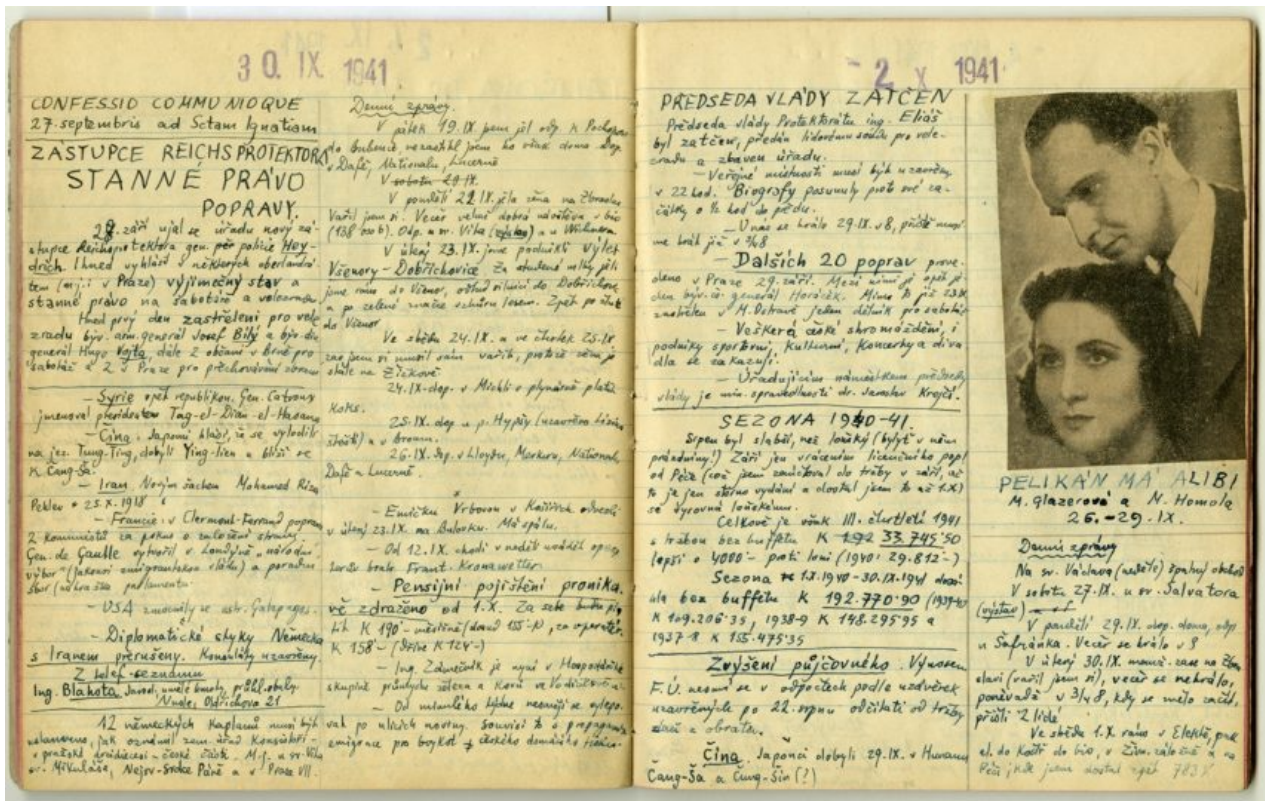 30. IX 1941
CONFESSIO COMMUNIOQUE
27. septembris ad Sctam Ignatiam
ZÁSTUPCE REICHSPROTEKTORA
STANNÉ PRÁVO
POPRAVY.
září ujal se úřadu nový zá-
stupce Reichsprotektora gen. policie Hey-
drich. Ihned vyhlásil v některých oberlandrá-
tem (mj. i v Praze) výjimečný stav a
stanné právo na sabotáže a
Hned prvý den zastřeleni pro vele
zradu býv. arm. generál Josef Bílý a býv. div.
generál Hugo Vojta, dále 2 občani v Brně pro
sabotáž a 2 v Praze pro přechovávání zbraní
- Syrie opět republikou. Gen. Catroux
jmenoval presidentem
- Čína. Japonci hlásí, že se vylodili
na jez. Tung-Ting, dobyli a blíží se
k Čang-Ša.
- Iran. Novým šachem Mohamed Riza
Pehlev
- Francie: v Clermont-Ferrand popraveni
2 komunisté za pokus o založení strany.
Gen. de Gaulle vytvořil v Londýně „národní
výbor" (jakousi emigrantskou vládu) a poradní
sbor (náhražka parlamentu
- USA zmocnily se ostr. Galapages.
- Diplomatické styky Německa
s Iranem přerušeny. Konsuláty uzavřeny.
Z telef. seznamu
Ing. Blahota
Nusle, Oldřichova 21
12 německých kaplanů musí být
ustanoveno, jak oznámil zem. úřad Konsistoři
v pražské arcidiecési - české části. M.j. u sv. Víta
sv. Mikuláše, Nejsv. Srdce Páně a v Praze VII.
Denní zprávy.
V pátek 19. IX. jsem jel odp. k
do Bubenče, nezastihl jsem ho však doma. Dop.
v Dafě, Nationalu, Lucerně
V sobotu 20. IX.
V pondělí 22. IX. jela žena na Zbraslav
Vařil jsem si. Večer velmi dobrá návštěva v bio
(138 osob). Odp. u sv. Víta (výstav) a u
V úterý 23. IX. jsme podnikli výlet
Všenory - Dobřichovice.
jsme ráno do Všenor, odtud silnicí do Dobřichovic
a po zelené značce vzhůru lesem. Zpět
do Všenor
Ve středu 24. IX. a ve čtvrtek 25. IX
zas jsem si musil sám vařit, protože žena je
stále na Žižkově
24. IX. dop. v Michli v plynárně platit
koks.
25. IX. dop. u p. Hypšy
a v
26. IX. dop. v Lloydu, Merkuru, Nationalu,
Dafě a Lucerně
- Emičku Vrbovou v Košířích odvezli
v úterý 23. IX. na Bulovku. Má spálu.
- Od 12. IX. chodí v neděli uvádět opět
bratr Frant. Kronawetter
- Pensijní pojištění pronika-
vě zdraženo od 1. X. Za sebe budu pla-
tit K 190'- měsíčně (dosud 155'- K), za operatéra
K 158'- (dříve K 124'-)
- Ing. Zámečník je nyní v Hospodářské
skupině průmyslu železa a kovů ve Vodičkově ul.
- Od minulého týdne nesmějí se vylepo-
vat po ulicích noviny. Souvisí to s propagandou
emigrace pro boykot českého denního tisku.
- 2 X 1941
PŘEDSEDA VLÁDY ZATČEN
Předseda vlády Protektorátu ing. Eliáš
byl zatčen, předán lidovému soudu pro vele-
zradu a zbaven úřadu.
- Veřejné místnosti musí být uzavřeny
v 22 hod. Biografy posunuly proto své za-
čátky o ½ hod do předu.
- U nás se hrálo 29. IX. v 8, příště musí
me hrát již v ¾8
- Dalších 20 poprav prove
deno v Praze 29. září. Mezi nimi je opět je
den býv. čs. generál Horáček. Mimo to již 23. IX.
zastřelen v M. Ostravě jeden dělník pro sabotáž
- Veškerá česká shromáždění, i
podniky sportovní, kulturní, koncerty a diva
dla se zakazují.
- Úřadujícím náměstkem předsedy
vlády je min. spravedlnosti dr. Jaroslav Krejčí.
SEZONA 1940-41.
Srpen byl slabší, než loňský (byly t. v něm
prázdniny!) Září jen vrácením licenčního popl
od Péče (což jsem zaúčtoval do tržby v září, ač
to je jen storno vydání a dostal jsem to až 1. X)
se vyrovná loňskému.
Celkově je však III. čtvrtletí 1941
s tržbou bez buffetu K 192 33.745'50
lepší o 4000'- proti loni (1940: 29.812'-)
Sezona 1. X. 1940 - 30. IX. 1941 dosá
hla bez buffetu K 192.770'90 (1939-40
K 109.206'35, 1938-9 K 148.295'95 a
1937-8 K 155.475'35
Zvýšení půjčovného. Výnosem
F.Ú. nesmí se v odpočtech podle uzávěrek
uzavřených po 22. srpnu odčítati od tržby
daň z obratu.
Čína. Japonci dobyli 29. IX. v Hunanu
Čang-Ša a Čung-Šin (?)
PELIKÁN MÁ ALIBI
M. Glazerová a N. Homola
26.-29. IX.
Denní zprávy
Na sv. Václava (neděle) špatný obchod
V sobotu 27. IX. u sv. Salvatora
(výstav)
V pondělí 29. IX. dop. doma, odp.
u Šafránka. Večer se hrálo v 8
V úterý 30. IX. manž. zase na Zbra-
slavi (vařil jsem si), večer se nehrálo,
poněvadž v ¾8, kdy se mělo začít,
přišli 2 lidé
Ve středu 1. X. ráno v Elektě, pak
el. do Košíř do bio, v Živn. záložně a na
Péči, kde jsem dostal zpět 783 K